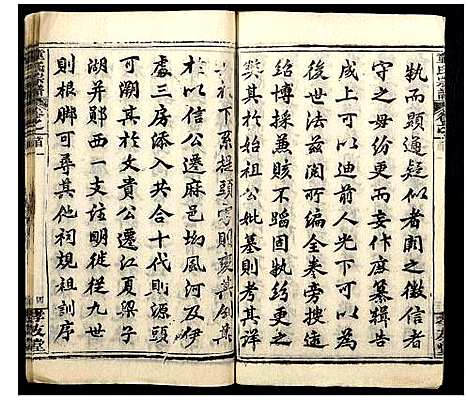 執而顕通疑似者闕之徴信者
守之毋紛更毋妄作庶纂輯告
成上可以迪前人光下可以貽
後世法玆閲所編全巻旁捜遠
紹博採兼賅不蹈固執紛更之
弊其於始祖公妣墓則考其詳
於其下系提頭寫則変其例其
於以信公遷麻邑坳風河及伊
處三房添入共合十代則源頭
可溯其於文貴公遷江夏梁子
湖并鄖西一支註明従徙九世
則根脚可尋其他祠規祖訓序
孝友堂